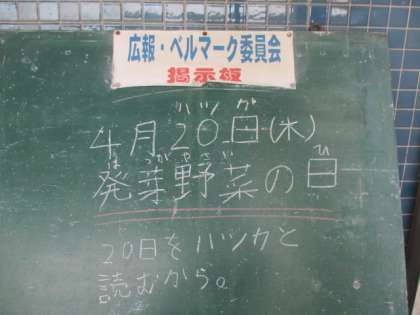 広報・ベルマーク委員会
掲示板
ハツカ
4月20日(木)
はつがやさい ひ
発芽野菜の日
20日をハツカと
読むから。